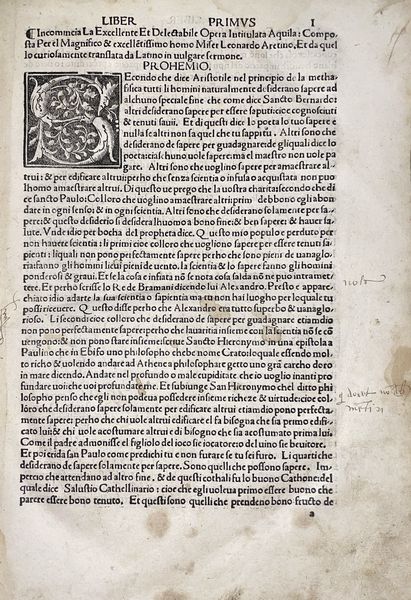 LIBER PRIMVS I
¶ Incommcia La Excellente Et Delectabile Opera Intitulata Aquila: Compo
sta Per el Magnifico & excellẽtissimo homo Miser Leonardo Aretino, Et da quel
lo curiosamente translata da Latino in vulgare sermone.
PROHEMIO.
Econdo che dice Aristotile nel principio de la metha
fisica tutti li homini naturalmente desiderano sapere ad
alchuno speciale fine che come dice Sancto Bernardo:
altri desiderano sapere per essere saputi: cioe cognosciuti
& tenuti savii. Et di questi dice lo poeta lo tuo sapere e
nulla se altri non sa quel che tu sappi tu. Altri sono che
desiderano sapere per guadagnare de gli quali dice lo
poeta: ciaschuno vole sapere: ma el maestro non vole pa
gare. Altri sono che uoglino sapere per amaestrare al
trui: & per edificare altrui perho che senza scientia o infusa o acquistata non puo
lhomo amaestrare altrui. Di questo ue prego che la uostra charita secondo che di
ce sancto Paulo: Colloro che uogliono amaestrare altri prim debbono egli abon
dare in ogni senso: & in ogni scientia. Altri sono che desiderano solamente per sa
pere: & questo desiderio si desidera lhuomo a bono fine: & ben sapere: & hauer sa
lute. Vnde idio per bocha del propheta dice. Questo mio populo e perduto per
non hauere scientia: li primi cioe colloro che uogliono sapere per essere tenuti sa
pienti: liquali non pono perfectamente sapere perho che sono pieni de uanaglo
ria: fanno gli homini licui pieni de uento. la scientia & lo sapere fanno gli homini
ponderosi & graui. Et se la cosa e infiata nõ se nota cosa salda nõ ne puo intramet
tere. Et perho scrisse lo Re de Bramani dicendo lui Alexandro. Presto e appare
chiato idio adarte la sua scientia o sapientia ma tu non hai luogho per loquale tu
possi riceuere. Questo disse perho che Alexandro era tutto superbo & uanaglo
rioso. Li secondi cioe colloro che desiderano de sapere per guadagnare etiamdio
non pono perfectamente sapere: perho che lauaritia insieme con la scientia nõ se cõ
uengono: & non pono stare insieme: scriue Sancto Hieronymo in una epistola a
Paulino che in Efiso uno philosopho che be nome Crato: loquale essendo mol
to richo & uolendo andare ad Athena a philosophare getto uno grã carcho doro
in mare dicendo. Andate nel profundo o male cupiditate che io uoglio inanti pro
fundare uoi: che uoi profundare me. Et subiunge San Hieronymo chel ditto phi
losopho penso che egli non podeua possedere insieme richeze & uirtude: cioe col
loro che desiderano sapere solamente per edificare altrui etiamdio pono perfecta
mente sapere: perho che chi uole altrui edificare el fa bisogna che sia primo edifi
cato lui: & chi uole acostumare altrui e di bisogno che sia acostumato prima lui.
Come il padre admonisse el figliolo del ioco sie iocatore: o del uino sie beuitore.
Et poi crida san Paulo come predichi tu e non furare se tu sei furo. Li quarti che
desiderano de sapere solamente per sapere. Sono quelli che possono sapere. Im
percio che attendano ad altro fine. & de questi cothali fu lo buono Cathone: del
quale dice Salustio Cathellinario: cioe che egli uoleua primo essere buono che
parere essere bono tenuto. Et questi sono quelli che prendeno bono fructo de
a